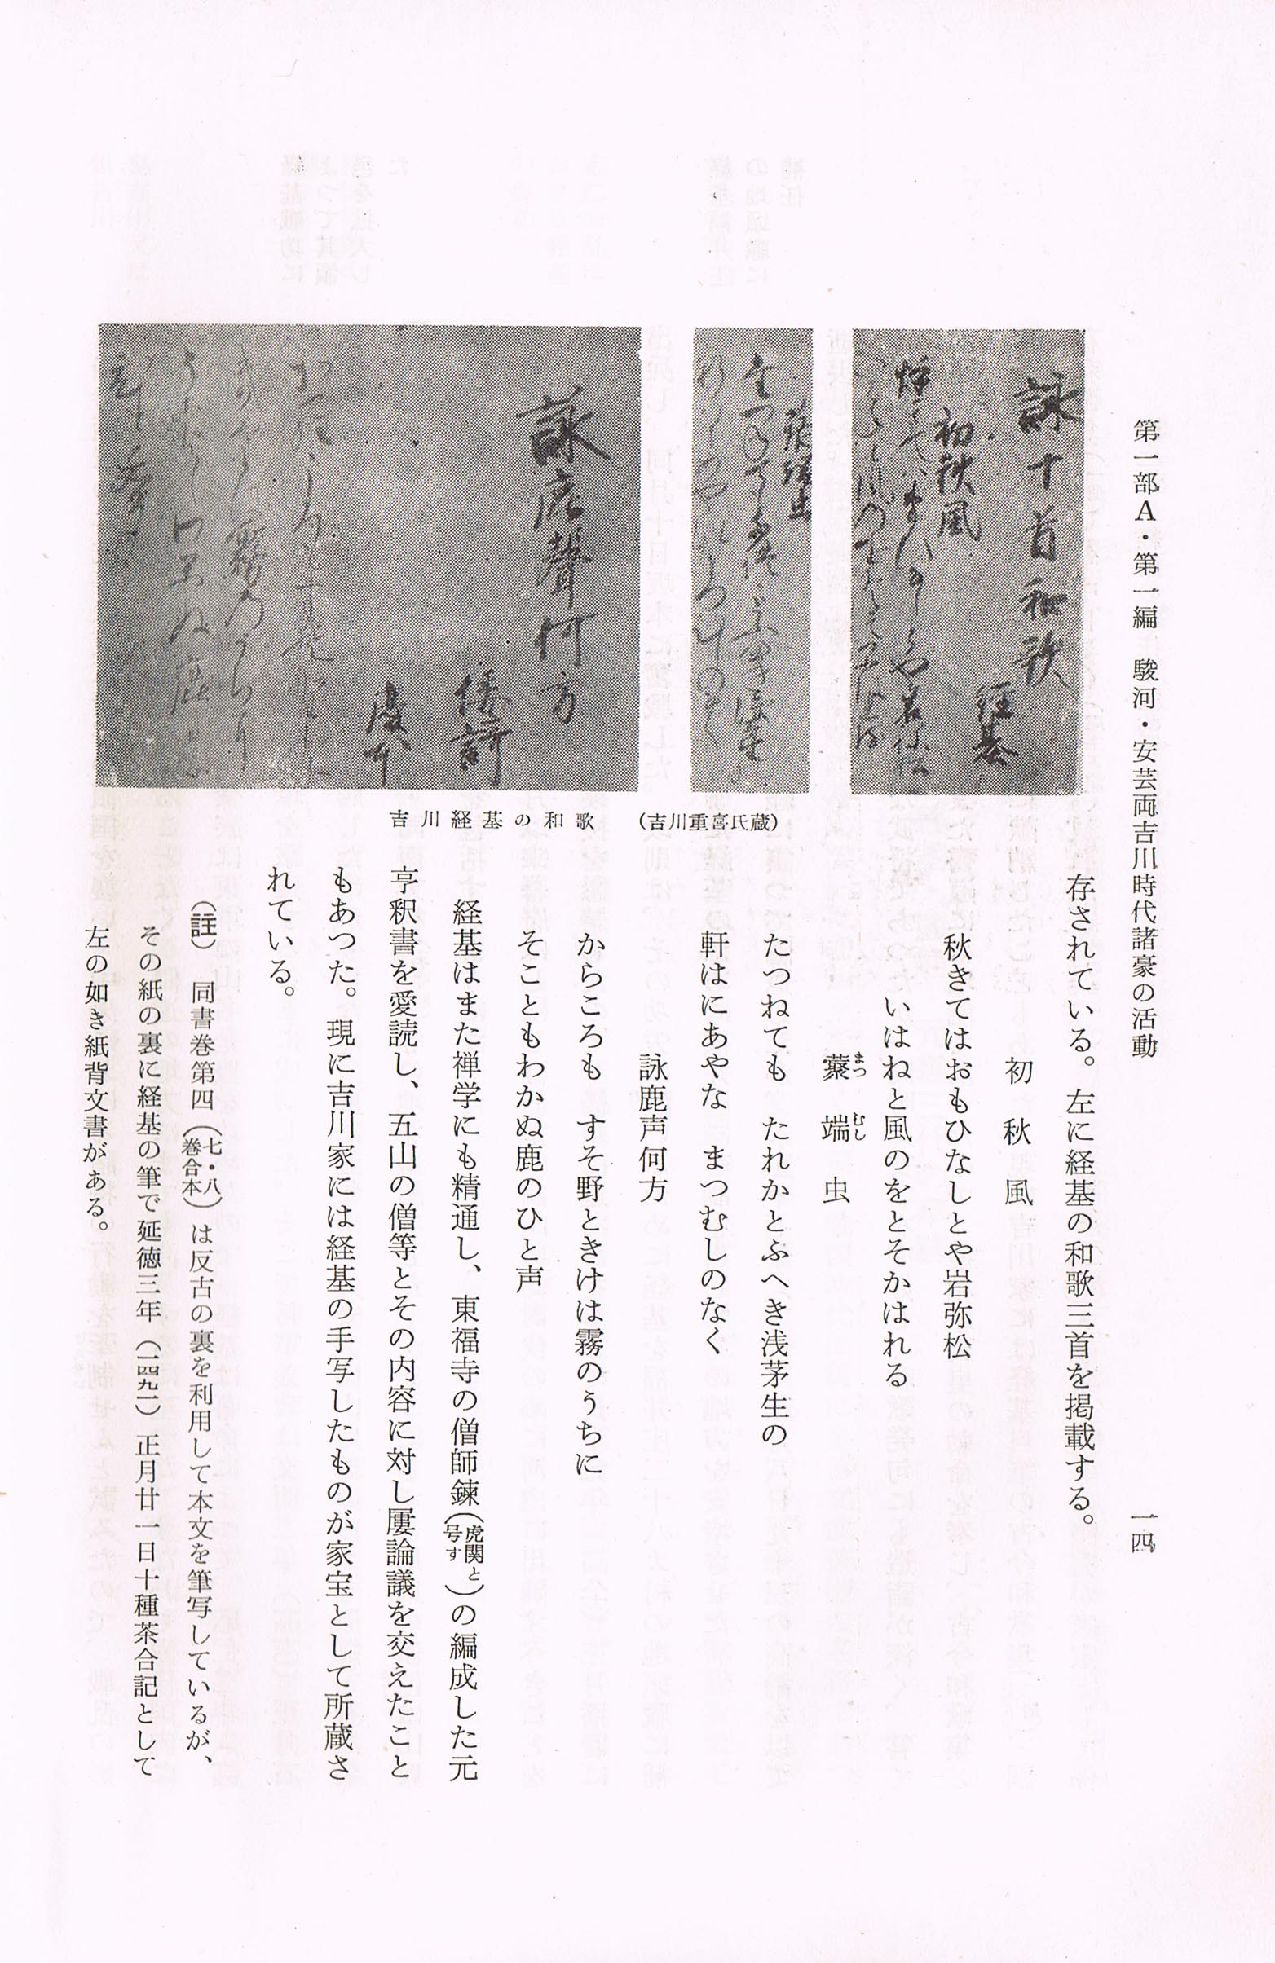 第一部A・第一編　駿河・安芸両吉川時代諸豪の活動
一四
存されている。左に経基の和歌三首を掲載する。
初秋風
秋きてはおもひなしとや岩弥松
いはねと風のをとそかはれる
蘂端虫
まつむし
たつねても　たれかとぶへき浅茅生の
軒はにあやな　まつむしのなく
詠鹿声何方
からころも　すそ野ときけは霧のうちに
そこともわかぬ鹿のひと声
経基はまた禅学にも精通し、東福寺の僧師錬（虎関と号す）の編成した元
亨釈書を愛読し、五山の僧等とその内容に対し屡論議を交えたこと
もあつた。現に吉川家には経基の手写したものが家宝として所蔵さ
れている。
（註）　同書巻第四（七・八巻合本）は反古の裏を利用して本文を筆写しているが、
その紙の裏に経基の筆で延徳三年（一四九一）正月廿一日十種茶合記として
左の如き紙背文書がある。
詠十首和歌
経基
初秋風
詠鹿聲何方
倭謌
吉川経基の和歌　（吉川重喜氏蔵）